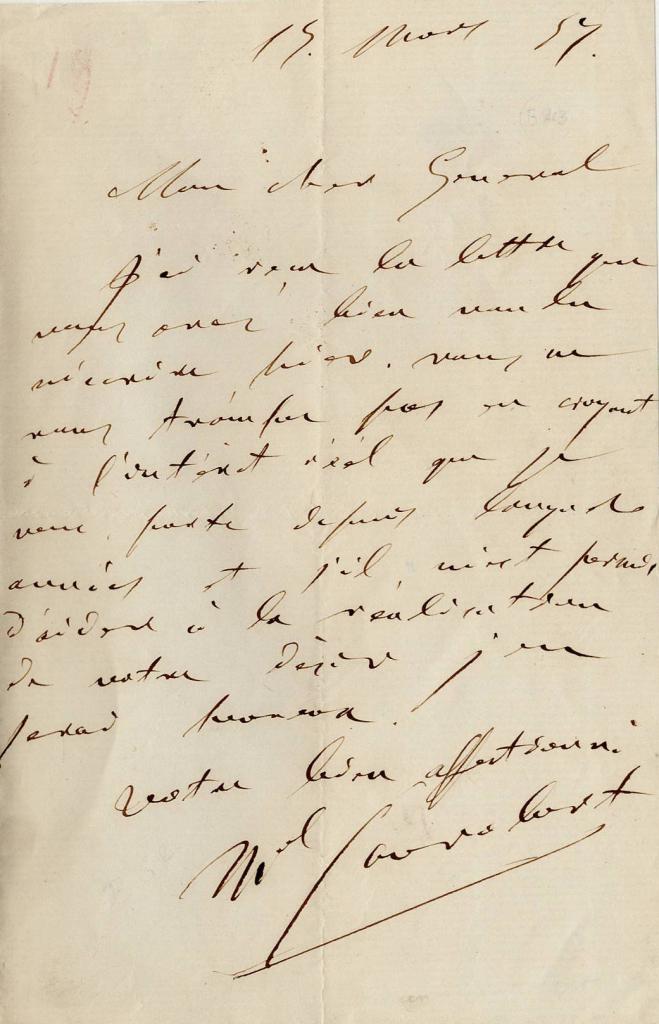 15. Mars 57.
Mon cher General
J'ai recu la lettre que
vous avez bien voulu
m'ecrire hier. vous ne
vous trompez pas en croyant
à l'intérêt réel que je
vous porte depuis longues
années et s'il m'est permis
d'aider à la réalisation
de votre désir j'en
serai heureux.
votre bien affectionné
Mal Canrobert